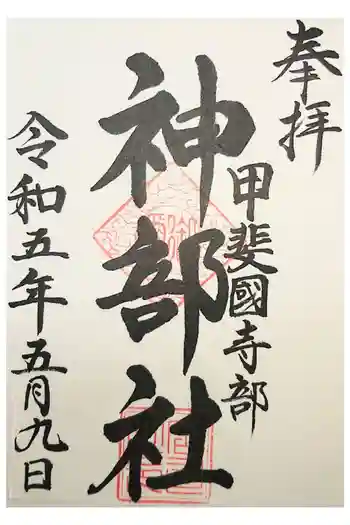 奉拝
甲斐國寺部
神部社
令和五年五月九日